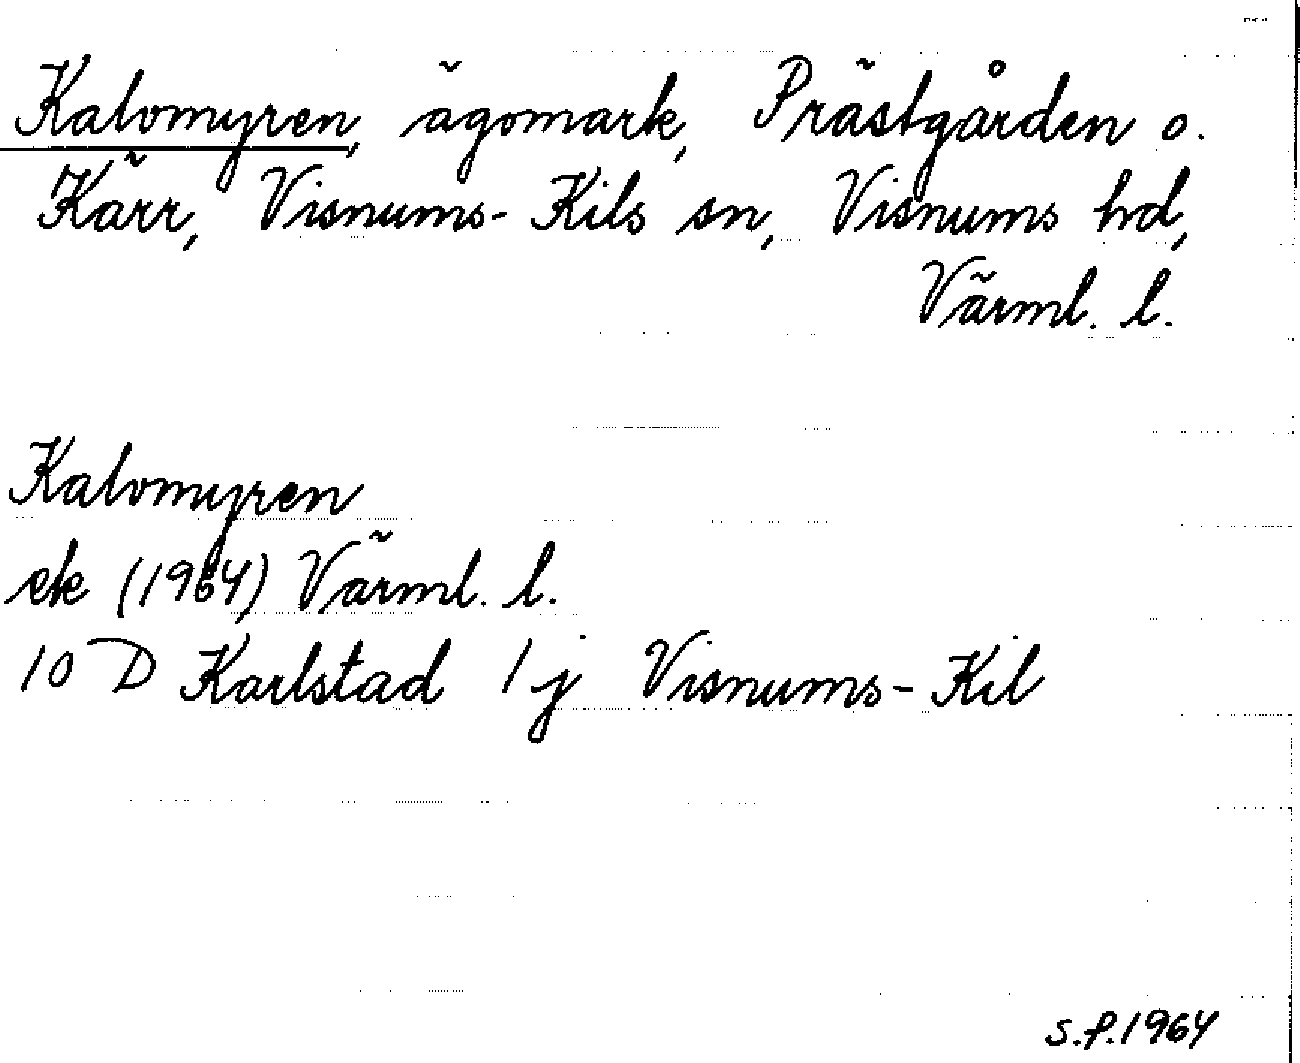 Kalvmyren, ägomark, Prästgården o.
Kärr, Visnums-Kils sn, Visnums hd,
Värml. l.
Kalvmyren
ek (1964) Värml. l.
10 D Karlstad 1 j Visnums-Kil
S.P. 1964